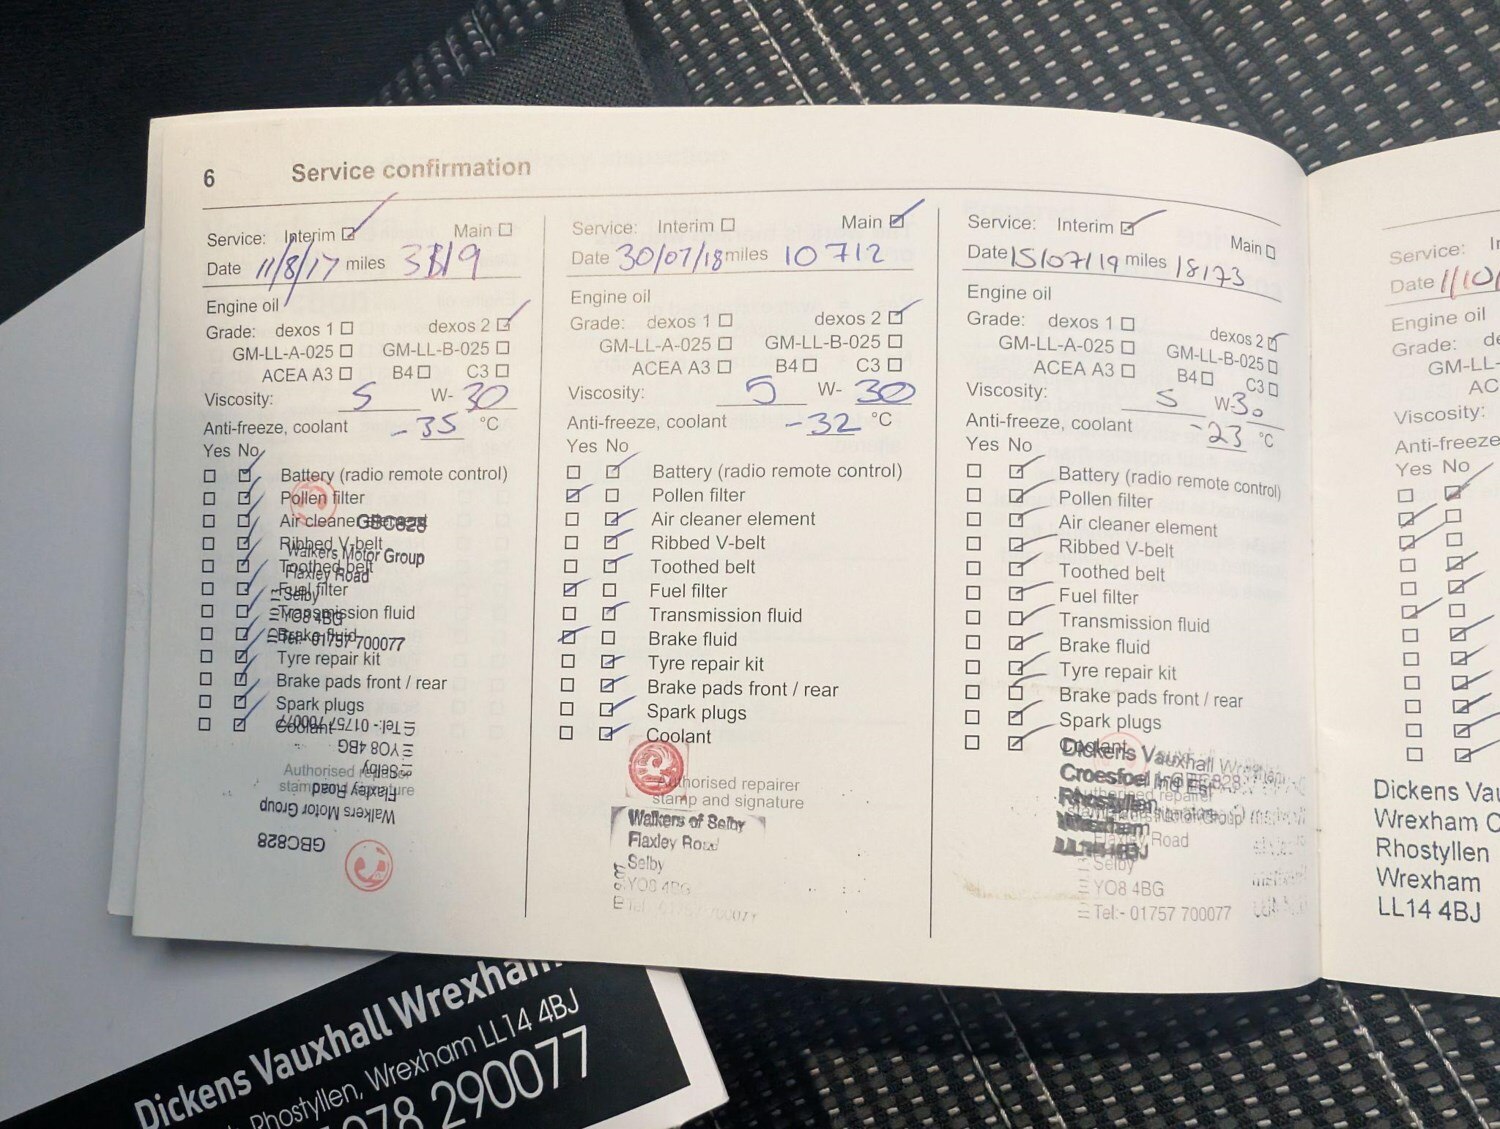 6 Service confirmation
Service: Interim Main
Date 11/8/17 miles
Engine oil
Grade: dexos 1 dexos 2
GM-LL-A-025 GM-LL-B-025
ACEA A3 B4 C3
Viscosity: 5 W- 30
Anti-freeze, coolant -35 °C
Yes No
Battery (radio remote control)
Pollen filter
Air cleaner
GBC828
Ribbed V-belt
Walkers Motor Group
Toothed belt
Flaxley Road
Fuel filter
Selby
Transmission fluid
YO8 4BG
Brake fluid
Tel:- 01757 700077
Tyre repair kit
Brake pads front / rear
Spark plugs
Coolant
Tel:- 01757 700077
YO8 4BG
Authorised repairer
Selby
stamp and signature
Flaxley Road
Walkers Motor Group
GBC828
Service: Interim Main
Date 30/07/18 miles 10712
Engine oil
Grade: dexos 1 dexos 2
GM-LL-A-025 GM-LL-B-025
ACEA A3 B4 C3
Viscosity: 5 W- 30
Anti-freeze, coolant -32 °C
Yes No
Battery (radio remote control)
Pollen filter
Air cleaner element
Ribbed V-belt
Toothed belt
Fuel filter
Transmission fluid
Brake fluid
Tyre repair kit
Brake pads front / rear
Spark plugs
Coolant
Authorised repairer
stamp and signature
Walkers of Selby
Flaxley Road
Selby
YO8 4BG
Tel:- 01757 700077
Service: Interim Main
Date 15/07/19 miles 18173
Engine oil
Grade: dexos 1 dexos 2
GM-LL-A-025 GM-LL-B-025
ACEA A3 B4 C3
Viscosity: 5 W- 30
Anti-freeze, coolant -23 °C
Yes No
Battery (radio remote control)
Pollen filter
Air cleaner element
Ribbed V-belt
Toothed belt
Fuel filter
Transmission fluid
Brake fluid
Tyre repair kit
Brake pads front / rear
Spark plugs
Coolant
Dickens Vauxhall
Croesfoel Ind Est
Authorised repairer
Rhostyllen
Wrexham
Road
LL14 4BJ
Selby
YO8 4BG
Tel:- 01757 700077
Service:
Date
Engine oil
Grade:
GM-LL-
Viscosity:
Anti-freeze
Yes No
Dickens
Wrexham
Rhostyllen
Wrexham
LL14 4BJ
Dickens Vauxhall Wrexham
Rhostyllen, Wrexham LL14 4BJ
078 290077